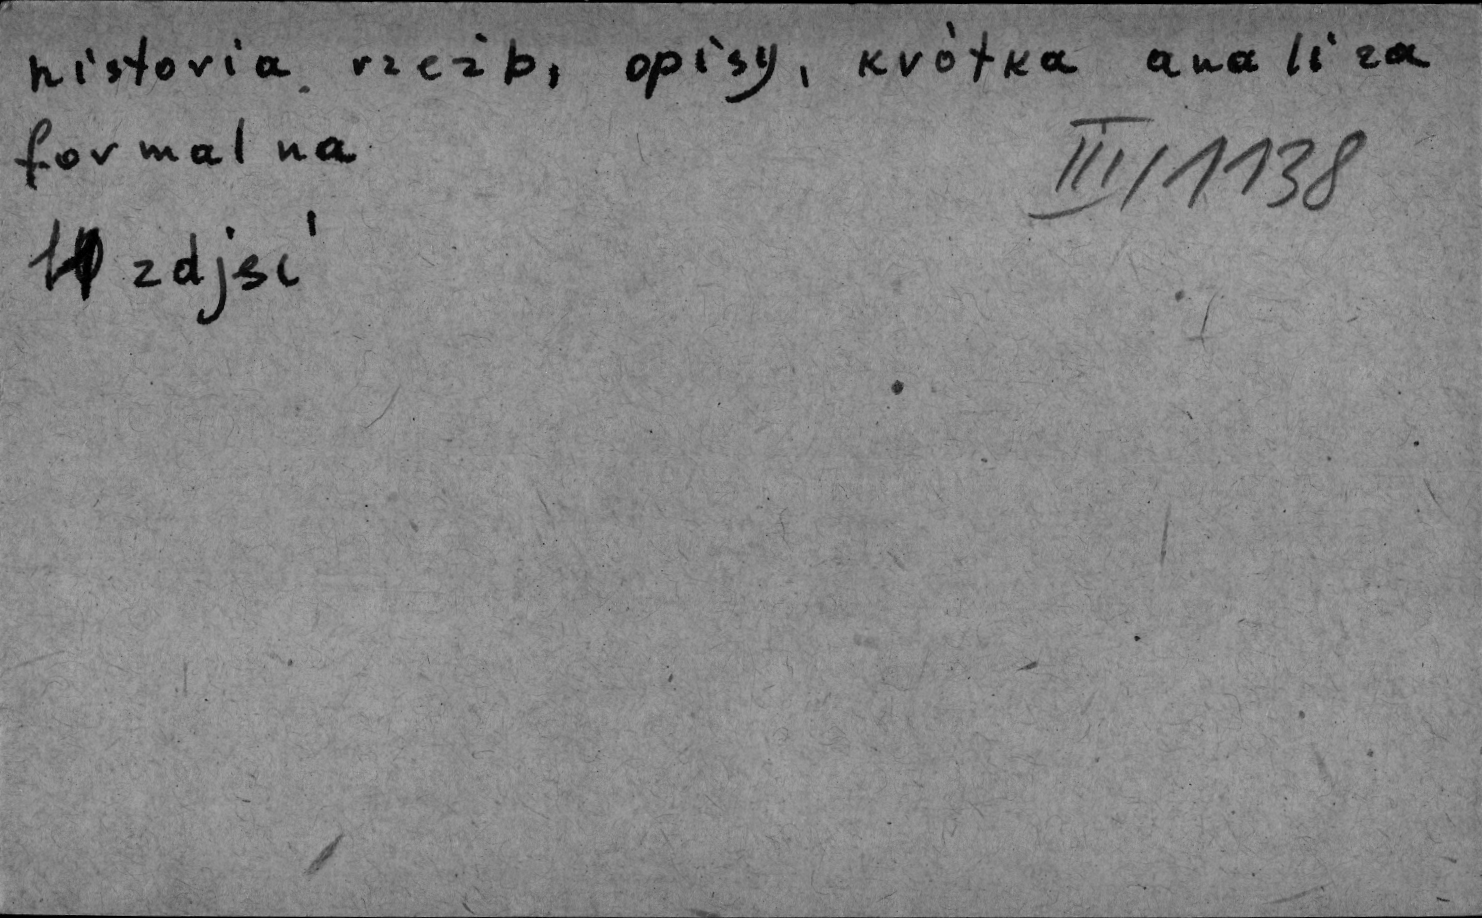 historia rzeźb, opisy, krótka analiza
formalna
III/1138
zdjęć